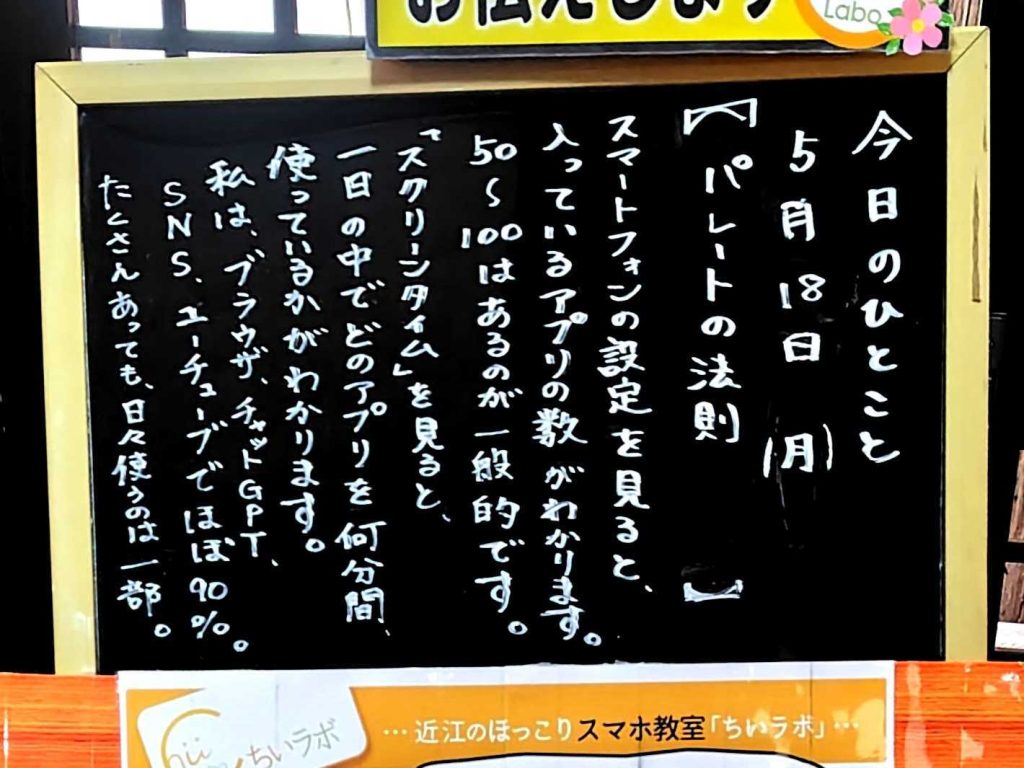 お伝えします
Labo
今日のひとこと
5月18日(月)
【パレートの法則】
スマートフォンの設定を見ると、
入っているアプリの数がわかります。
50〜100はあるのが一般的です。
「スクリーンタイム」を見ると、
一日の中でどのアプリを何分間、
使っているかがわかります。
私は、ブラウザ、チャットGPT、
SNS、ユーチューブでほぼ90%。
たくさんあっても、日々使うのは一部。
…近江のほっこりスマホ教室「ちいラボ」…
ちいラボ